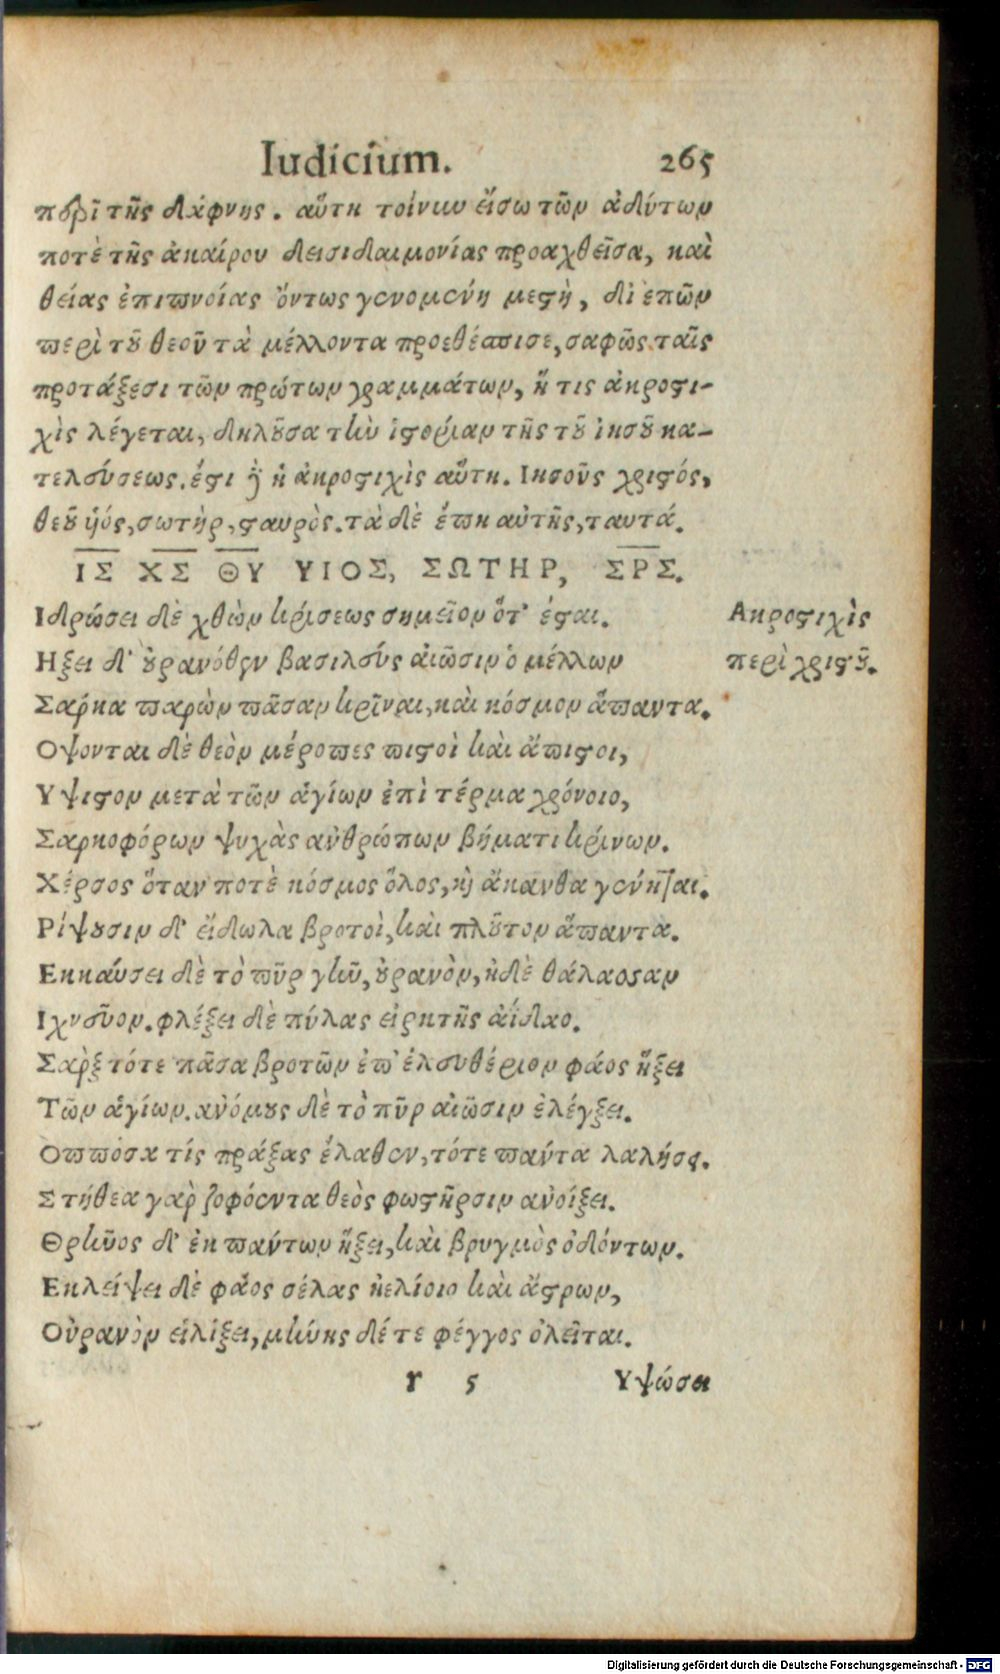 Iudicium. 265
περὶ τῆς Δάφνης. αὕτη τοίνυν εἴσω τῶν ἀδύτων
ποτὲ τῆς ἀκαίρου δεισιδαιμονίας προαχθεῖσα, καὶ
θείας ἐπιπνοίας ὄντως γενομένη μεστὴ, δι' ἐπῶν
περὶ τοῦ θεοῦ τὰ μέλλοντα προεθέσπισε, σαφῶς ταῖς
προτάξεσι τῶν πρώτων γραμμάτων, ἥ τις ἀκροστι-
χὶς λέγεται, δηλοῦσα τὴν ἱστορίαν τῆς τοῦ ἰησοῦ κα-
τελεύσεως. ἔστι γὰρ ἡ ἀκροστιχὶς αὕτη. Ιησοῦς χριστός,
θεοῦ ὑιός, σωτὴρ, σταυρὸς. τὰ δὲ ἔπη αὐτῆς, ταυτά.
ΙΣ ΧΣ ΘΥ ΥΙΟΣ, ΣΩΤΗΡ, ΣΡΣ.
Ιδρώσει δὲ χθὼν κρίσεως σημεῖον ὅτ' ἔσται.
Ακροστιχὶς
Ηξει δ' οὐρανόθεν βασιλεύς αἰῶσιν ὁ μέλλων
περὶ χριστοῦ.
Σαρκα παρὼν πᾶσαν κρῖναι, καὶ κόσμον ἅπαντα.
Οψονται δὲ θεὸν μέροπες πιστοὶ καὶ ἄπιστοι,
Υψιστον μετὰ τῶν ἁγίων ἐπὶ τέρμα χρόνοιο,
Σαρκοφόρων ψυχὰς ανθρώπων βήματι κρίνων.
Χέρσος ὅταν ποτὲ κόσμος ὅλος, καὶ ἄκανθα γένηται.
Ρίψουσιν δ' εἴδωλα βροτοὶ, καὶ πλοῦτον ἅπαντα.
Εκκαύσει δὲ τὸ πῦρ γῆν, οὐρανὸν, ἠδὲ θάλασσαν
Ιχνεῦον. φλέξει δὲ πύλας εἱρκτῆς ἀΐδαο.
Σαρξ τότε πᾶσα βροτῶν ἐπ' ἐλευθέριον φάος ἥξει
Τῶν ἁγίων. ανόμους δὲ τὸ πῦρ αἰῶσιν ἐλέγξει.
Οππόσα τίς πράξας ἔλαθεν, τότε πάντα λαλήσει.
Στήθεα γαρ ζοφόεντα θεὸς φωστῆρσιν ανοίξει.
Θρῆνος δ' ἐκ πάντων ἥξει, καὶ βρυγμὸς ὀδόντων.
Εκλείψει δὲ φάος σέλας ἠελίοιο καὶ ἄστρων,
Οὐρανὸν εἱλίξει, μήνης δέ τε φέγγος ὀλεῖται.
r 5 Υψώσει
Digitalisierung gefördert durch die Deutsche Forschungsgemeinschaft - DFG